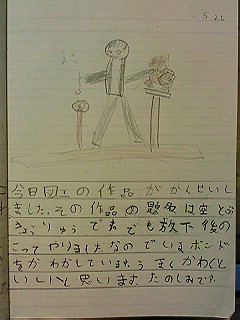 5 26
今日図工の作品がかんせいし
ました。その作品の題名は空とぶ
きょうりゅうです。でも放下後の
こってやりました。なのでいまボンド
をかわかしています。うまくかわくと
いいと思います。たのしみです。